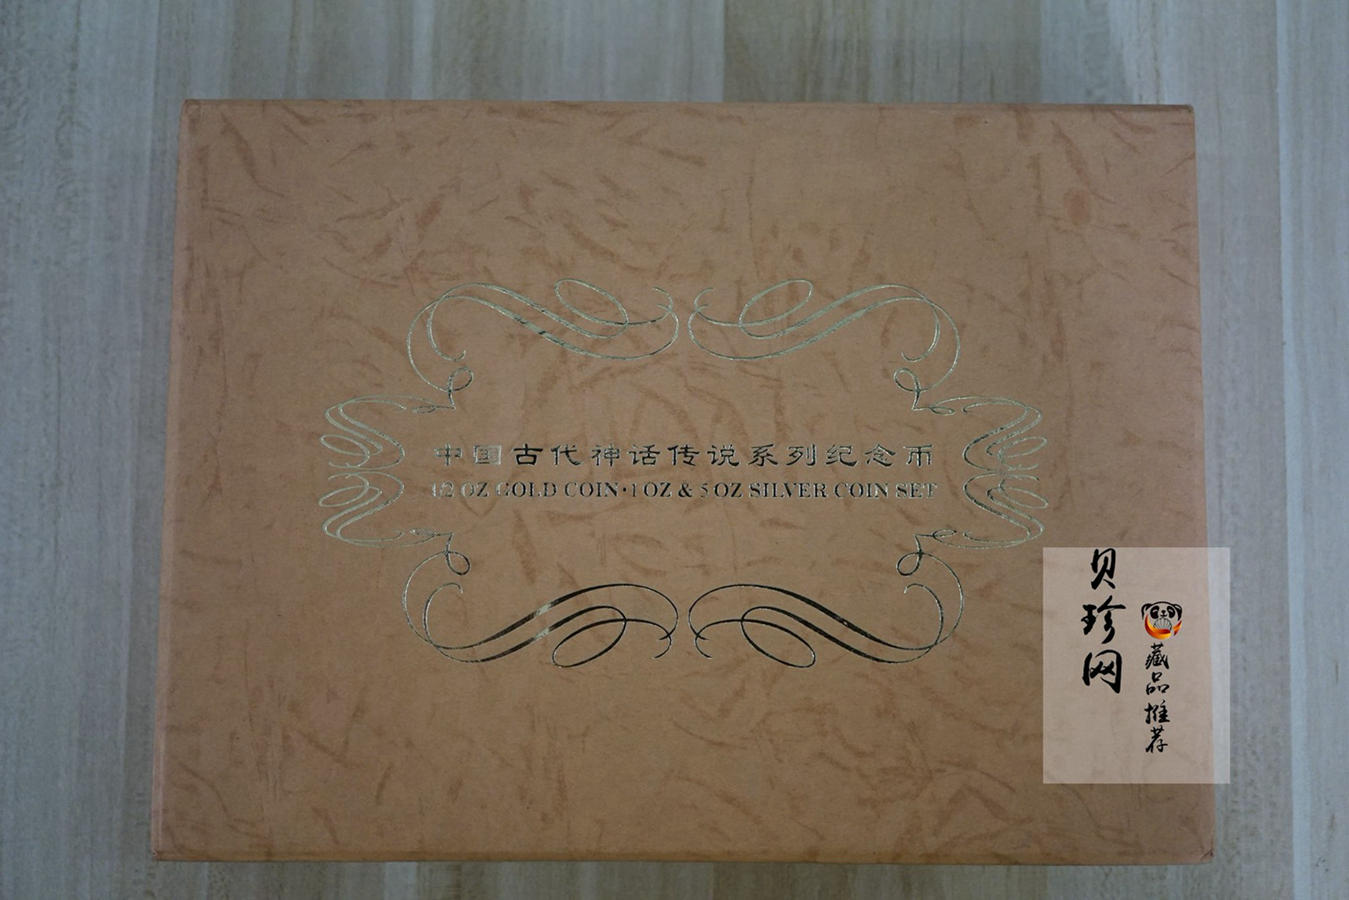 中国古代神话传说系列纪念币
1/2 OZ GOLD COIN·1 OZ & 5 OZ SILVER COIN SET
贝珍网
藏品推荐